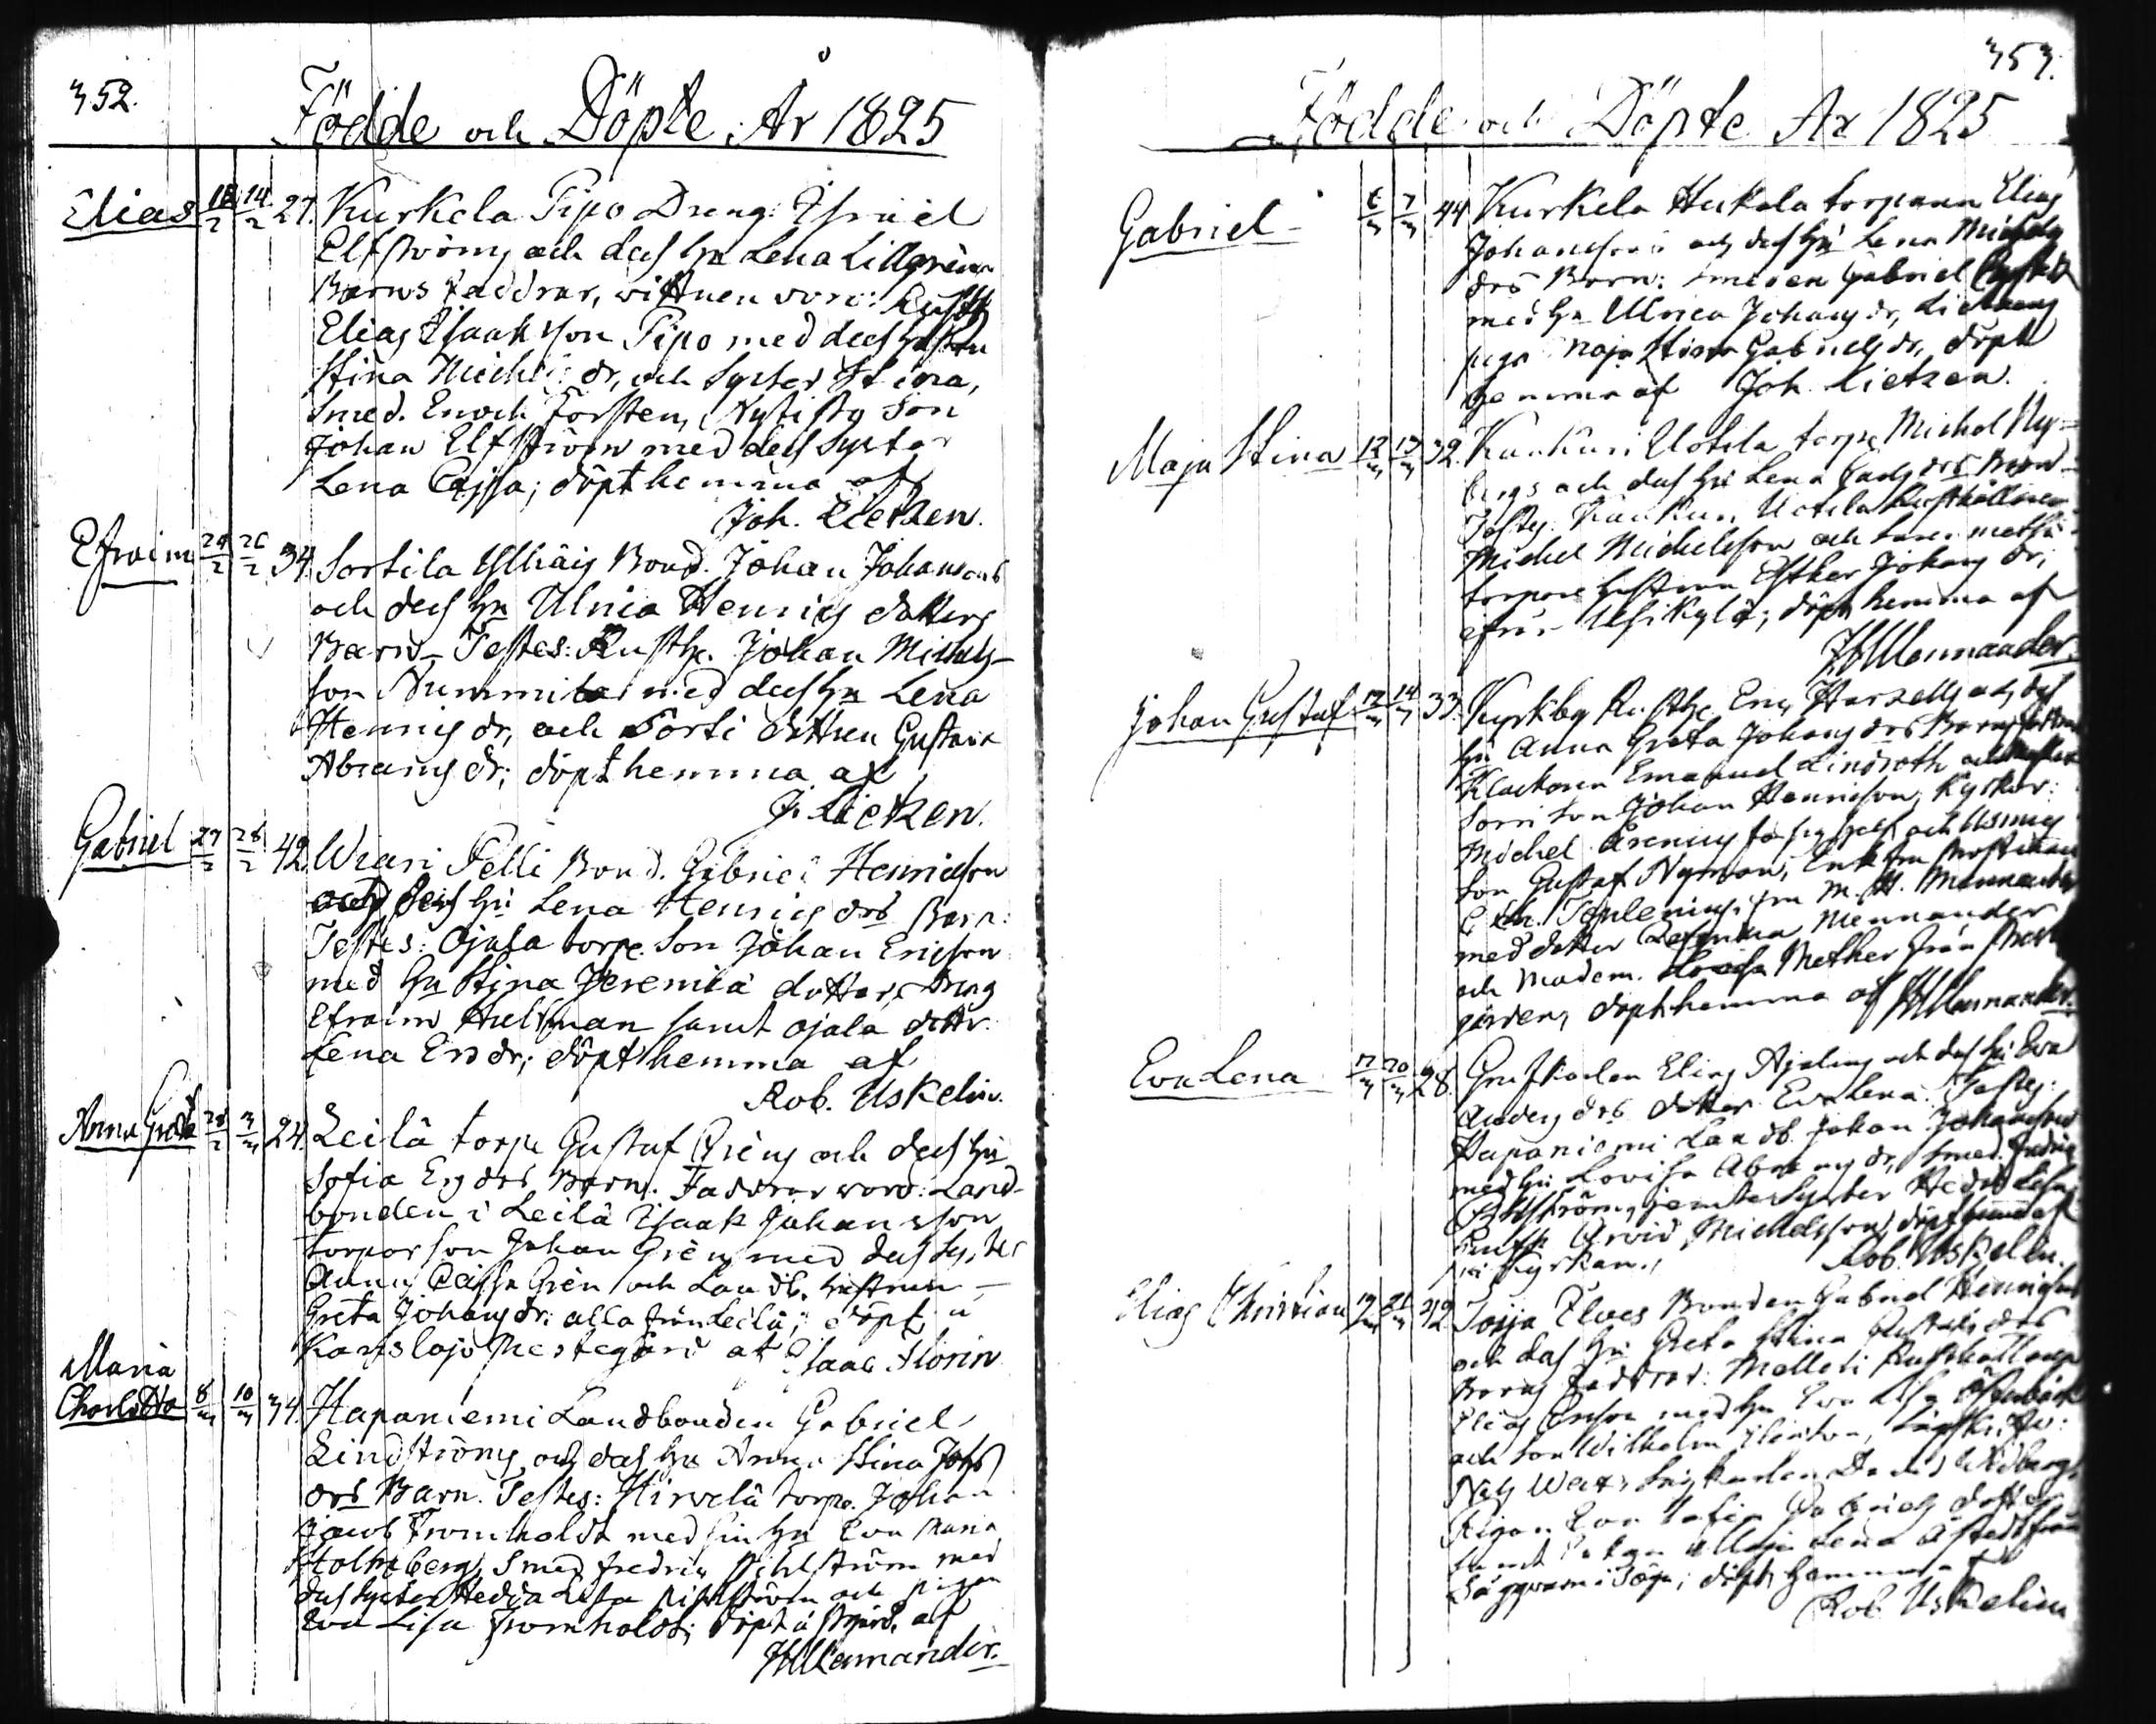 352.
Födde och Döpte År 1825
Elias 12/2 14/2 27. Kurkela Pipo Dreng: Isra el
Elfströms och dess hu Lena Lillgrens
Barns Faddrar, wittnen voro: Rusth
Elias Isaaksson Pipo med dess hustru
Stina Michels dr, och Syster Stina,
Smed. Enoch Forsten, son
Johan Elfström med dess Syster
Lena Cajsa; döpt hemma af
Joh. Lietzen.
Efraim 24/2 26/2 34. Sortila Yllhäis Bond. Johan Johansons
och dess hu Ulrica Henrics dotters
Barn Testes: Rusth. Johan Michels-
son Nummila med dess hu Lena
Henrics dr, och Sorti dottren Gustava
Abrams dr; döpt hemma af
J. Lietzen.
Gabriel 27/2 28/2 42. Wiari Pelli Bond. Gabriel Henricsson
och dess hu Lena Henrics drs Barn:
Testes: Ojala torp. Son Johan Ericsson
med hu Stina Jeremiä dotter, Dreng
Efraim Hultman samt Ojala dottr.
Lena Ersdr; döpt hemma af
Rob. Uskelin.
Anna Greta 28/2 3/3 24. Leilä torp Gustaf Grens och dess hu
Sofia Ers drs Barn. Faddrar voro: Land-
bonden i Leilä Isaak Johansson
torpar son Johan Gren med dess Syster
Anna Cajsa Gren och Landb. hustrun
Greta Johans dr: alla från Leilä; döpt i
Karislojo Prestegård af Isaac Florin
Maria
Charlotta 8/3 10/3 34. Hapaniemi Landbonden Gabriel
Lindströms och dess hu Anna Stina Johs
drs Barn. Testes: Hirvelä torp. Johan
Jacob Fromholdt med sin hu Eva Maria
Holmberg, Smed Fredric Pihlström med
dess Syster Hedda Lisa Pihlström och pigan
Eva Lisa Fromholdt; döpt å af
JHMennander.
353.
Födde och Döpte År 1825
Gabriel 6/3 7/3 44 Kurkela Hukala torparen Elias
Johanssons och dess hu Lena Michels
drs Barn: Smeden Gabriel
med hu Ulrica Johans dr,
piga Maja Stina Gabriels dr, döpt
hemma af Joh. Lietzen.
Maja Stina 12/3 13/3 32. Karkuri Uotila torp. Michel Ny-
bergs och dess hu Lena drs Barn
Testes: Karkuri Uotila Rusthållaren
Michel Michelsson och
torpare hustrun Esther Johans dr,
från Uskikylä; döpt hemma af
JHMennander.
Johan Gustaf 12/3 14/3 33. Kyrkby Rusth. Eric och dess
hu Anna Greta Johans drs Barn
Klockaren Emanuel Lindroth och
Sorri Son Johan Henricsson, Kyrkov:
Michel Arenius
Son Gustaf Nyman, Enkefru
fru M. H. Mennander
med dotter Mennander
och Madem. Lovisa Mether från Prest
gården, döpt hemma af JHMennander.
Eva Lena 17/3 20/3 28. Grufkarlen Elias Ajalins och dess hu Eva
Anders drs dotter Eva Lena. Testes:
Hapaniemi Landb. Johan Johansson
med hu Lovisa Abrams dr, Smed. Fredric
Pihlström, jemte Syster Hedda Lisa,
Rusth Arvid Michelsson, döpt
i Kyrkan. Rob. Uskelin.
Elias Christian 19/3 21/3 42. Torjja Floes Bonden Gabriel Henricsons
och dess hu Greta Stina Gustafs drs
Barns Faddrar: Melleli Rusthållaren
Elias Ericsson med hu Eva Lisa
och Son Wilhelm Eliasson,
Nils
Pigan Eva Sofia Gabriels dotter
samt pigan Maja Lena från
Sågqwarn i Torja; döpt hemma af
Rob. Uskelin